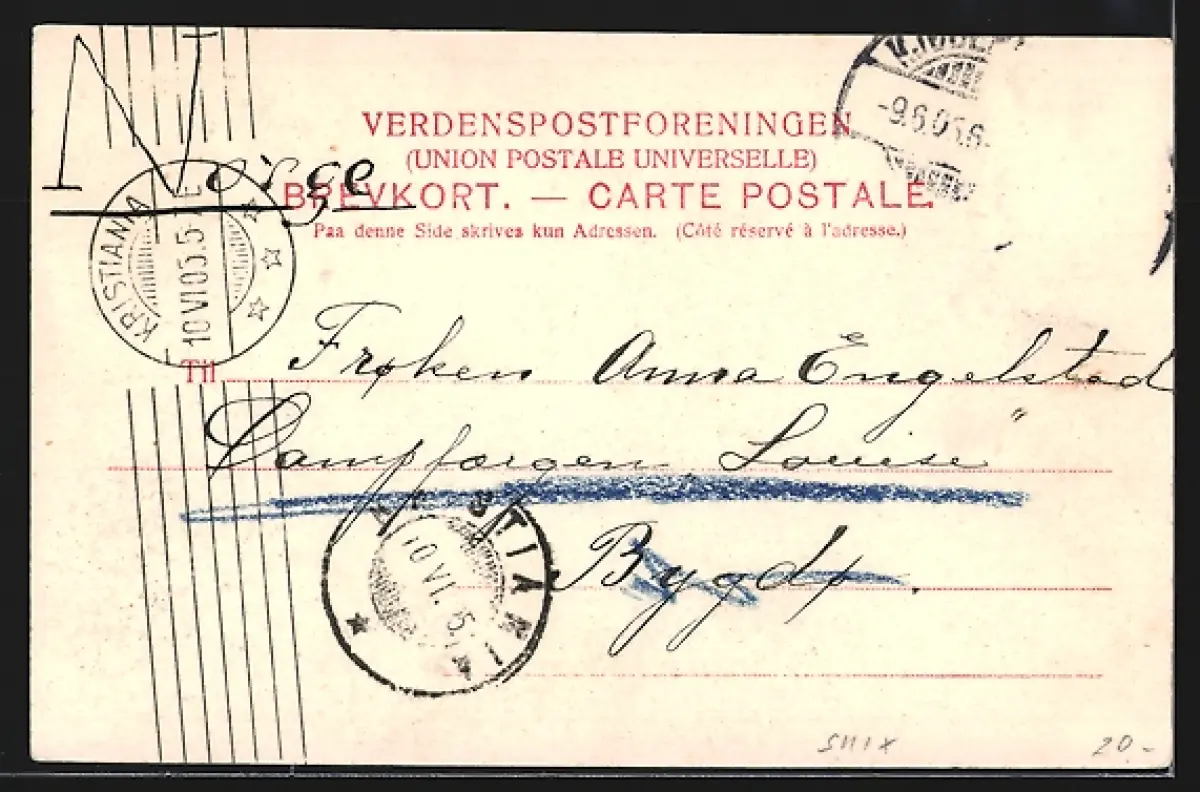 Norge
VERDENSPOSTFORENINGEN
(UNION POSTALE UNIVERSELLE)
BREVKORT. — CARTE POSTALE.
Paa denne Side skrives kun Adressen. (Côté réservé à l'adresse.)
-9.6.05.6-
KRISTIANIA
10 VI 05.5-
Til Frøken Anna Engelstad
Dampfærgen „Louise“
Bygdø.
KRISTIANIA
10 VI. 05.
20.-